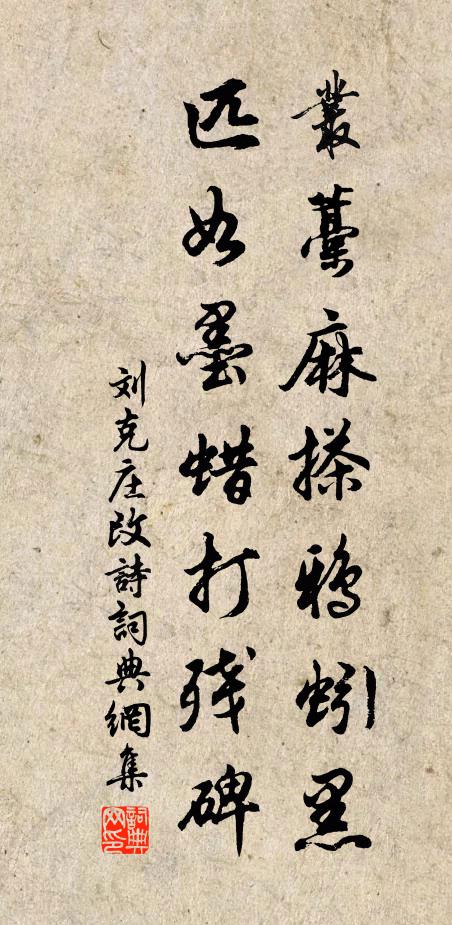 叢藁麻搽鴉蚓黑
匹如墨蜡打残碑
刘克庄改詩詞典網集
詞典网印